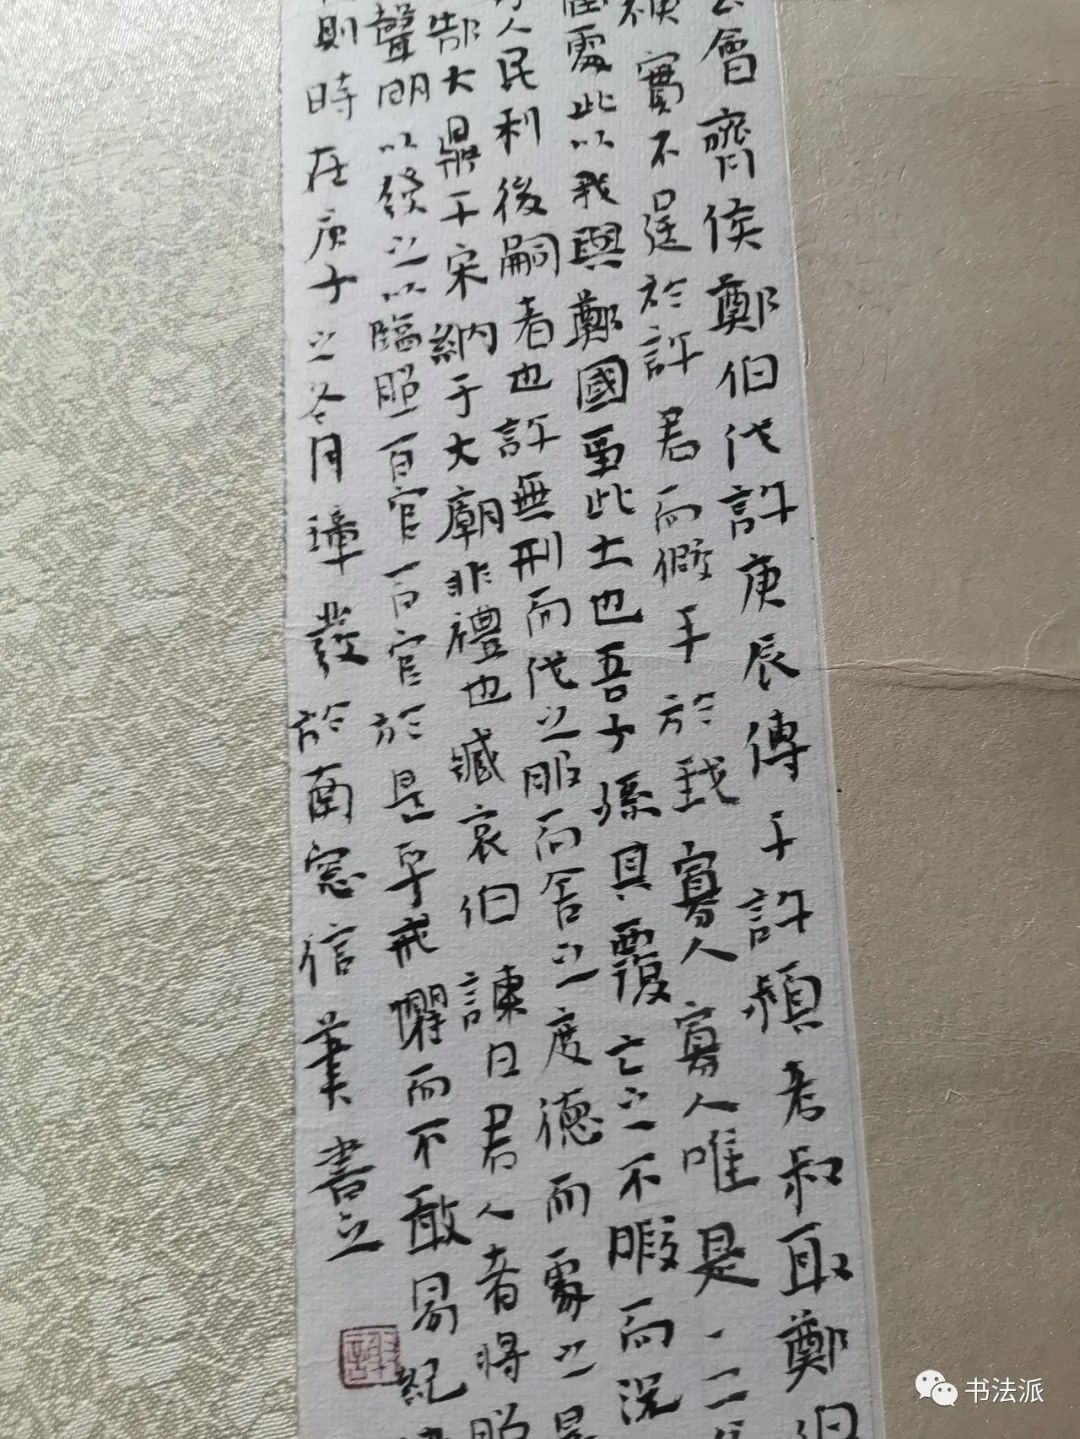 會齊侯鄭伯伐許庚辰傅于許潁考叔取鄭伯
實不逞於許君而假手於我寡人寡人唯是一二
處此以我與鄭國爭此土也吾子孫其覆亡之不暇而況
人民利後嗣者也許無刑而伐之服而舍之度德而處之
郜大鼎于宋納于大廟非禮也臧哀伯諫曰君人者將昭
聲明以發之以臨照百官百官於是乎戒懼而不敢易紀
則時在庚子之冬月璋發於南窓信筆書之
书法派